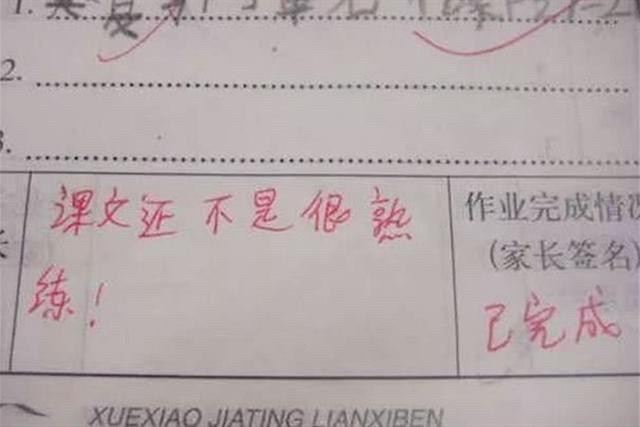 1.
2.
3.
课文还不是很熟
练!
作业完成情况
(家长签名)
已完成
XUEXIAO JIATING LIANXIBEN